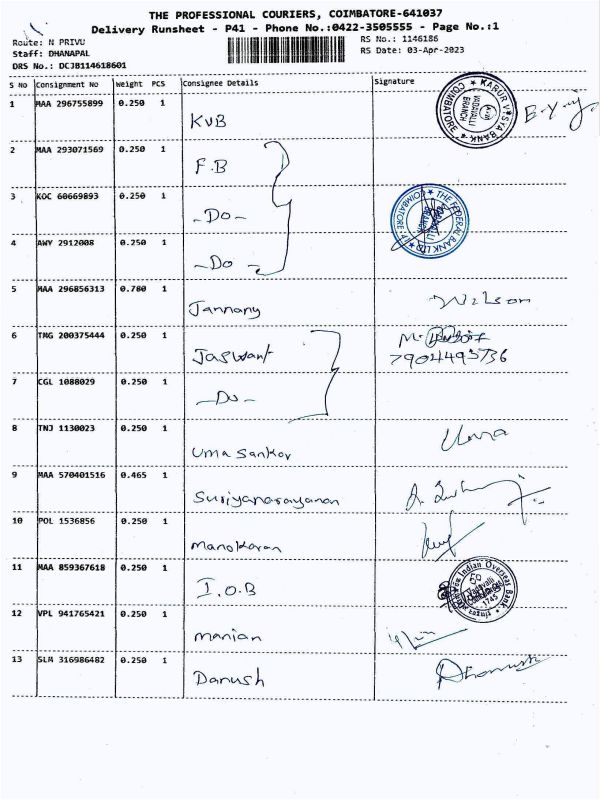 THE PROFESSIONAL COURIERS, COIMBATORE-641037
Delivery Runsheet - P41 - Phone No.:0422-3505555 - Page No.:1
Route: N PRIVU
RS No.: 1146186
Staff: DHANAPAL
RS Date: 03-Apr-2023
DRS No.: DCJB114618601
S No Consignment No Weight PCS Consignee Details Signature
1 MAA 296755899 0.250 1 KVB
KARUR VYSYA BANK COIMBATORE VADAVALLI BRANCH
2 MAA 293071569 0.250 1 F.B
3 KOC 60669893 0.250 1 -Do-
THE FEDERAL BANK LTD COIMBATORE
4 AWY 2912008 0.250 1 -Do-
5 MAA 296856313 0.780 1 Jannany Wilson
6 TMG 200375444 0.250 1 Jaswant M.
7904493736
7 CGL 1088029 0.250 1 -Do-
8 TNJ 1130023 0.250 1 Uma Sankar Uma
9 MAA 570401516 0.465 1 Suriyanarayanan
10 POL 1536856 0.250 1 Manokaran
11 MAA 859367618 0.250 1 I.O.B
Indian Overseas Bank Vadavalli 1745
12 VPL 941765421 0.250 1 Manian
13 SLM 316986482 0.250 1 Danush Dhanush